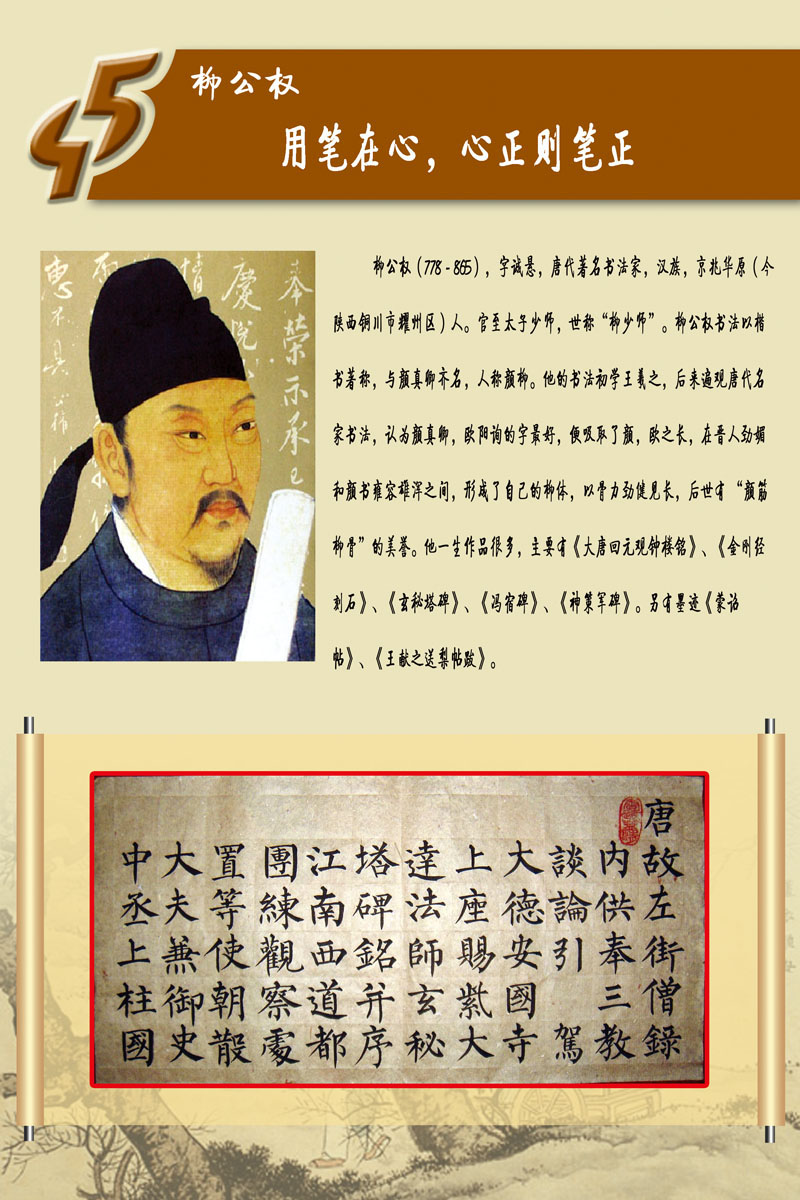 45
柳公权
用笔在心，心正则笔正
柳公权（778-865），字诚悬，唐代著名书法家，汉族，京兆华原（今
陕西铜川市耀州区）人。官至太子少师，世称“柳少师”。柳公权书法以楷
书著称，与颜真卿齐名，人称颜柳。他的书法初学王羲之，后来遍观唐代名
家书法，认为颜真卿，欧阳询的字最好，便吸取了颜，欧之长，在晋人劲媚
和颜书雍容雄浑之间，形成了自己的柳体，以骨力劲健见长，后世有“颜筋
柳骨”的美誉。他一生作品很多，主要有《大唐回元观钟楼铭》、《金刚经
刻石》、《玄秘塔碑》、《冯宿碑》、《神策军碑》。另有墨迹《蒙诏
帖》、《王献之送梨帖跋》。
奉榮示承
慶悅
惠不具
唐故左街僧錄
内供奉三教
談論引駕
大德安國寺
上座賜紫大
達法師玄秘
塔碑銘并序
江南西道都
團練觀察處
置等使朝散
大夫兼御史
中丞上柱國